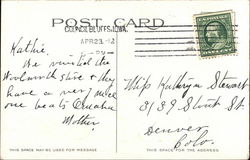 POST CARD
COUNCIL BLUFFS, IOWA.
APR 23
Kathie,
We visited the
Woolworth store & they
have a very nice
one beats Omaha
Mother.
Miss Kathryn Stewart
3139 Stout St
Denver,
Colo.
THIS SPACE MAY BE USED FOR MESSAGE
THIS SPACE FOR THE ADDRESS